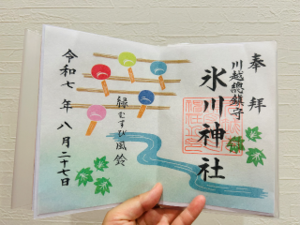 奉拝
川越總鎮守
氷川神社
縁むすび風鈴
令和七年八月二十七日